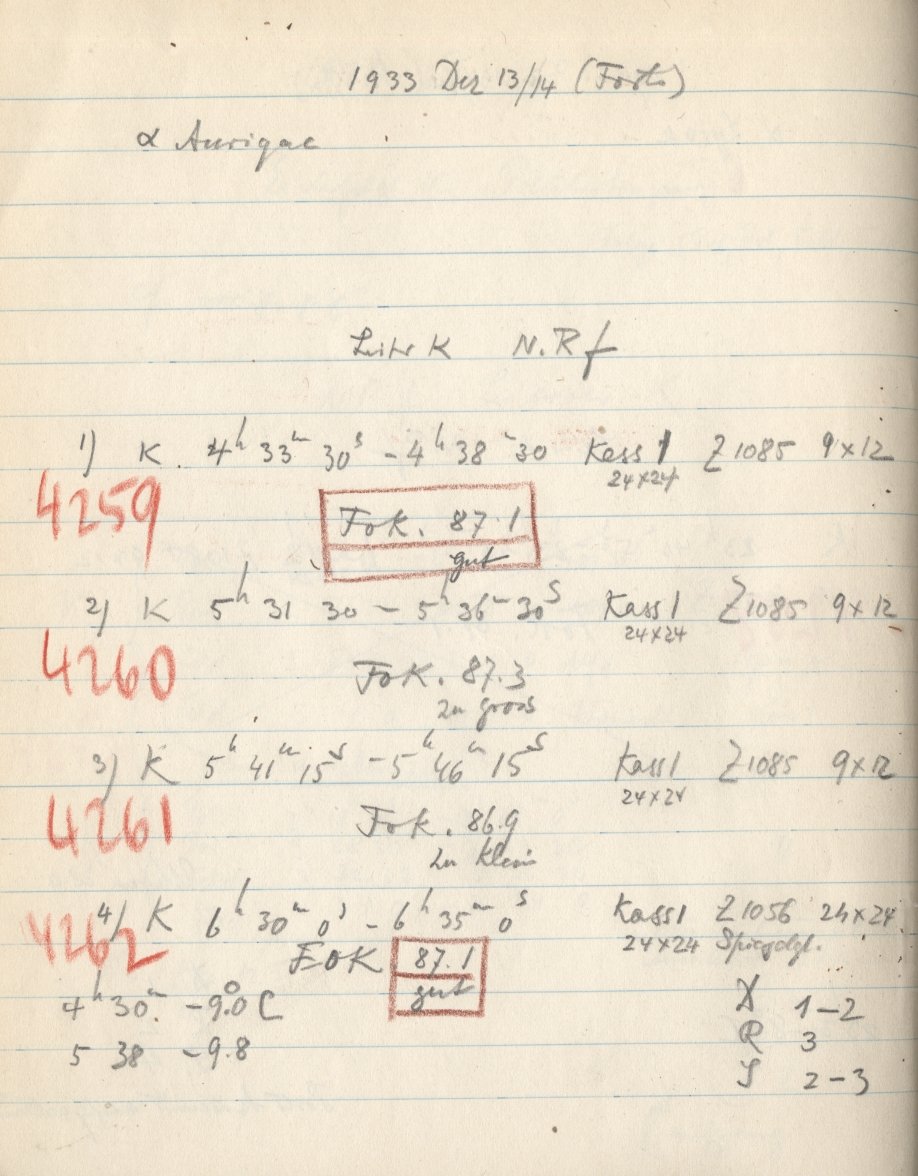 1933 Dez 13/14 (Forts)
α Aurigae
Leitr K N. Rf
1) K. 4h 33m 30s - 4h 38m 30 Kass 1 Z1085 9x12
24x24
4259
Fok. 87.1
gut
2) K 5h 31 30 - 5h 36m 30s Kass 1 Z1085 9x12
24x24
4260
Fok. 87.3
zu gross
3) K 5h 41m 15s - 5h 46m 15s Kass 1 Z1085 9x12
24x24
4261
Fok. 86.9
zu klein
4) K 6h 30m 0s - 6h 35m 0s Kass 1 Z1056 24x24
24x24 Spiegelgl.
4262
Fok 87.1
gut
4h 30m -9.0° C
5 38 -9.8
1-2
R 3
2-3